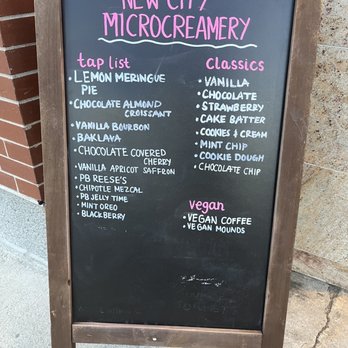 NEW CITY
MICROCREAMERY
tap list
• LEMON MERINGUE
PIE
• CHOCOLATE ALMOND
CROISSANT
• VANILLA BOURBON
• BAKLAVA
• CHOCOLATE COVERED
CHERRY
• VANILLA APRICOT SAFFRON
• PB REESE'S
• CHIPOTLE MEZCAL
• PB JELLY TIME
• MINT OREO
• BLACKBERRY
classics
• VANILLA
• CHOCOLATE
• STRAWBERRY
• CAKE BATTER
• COOKIES & CREAM
• MINT CHIP
• COOKIE DOUGH
• CHOCOLATE CHIP
vegan
• VEGAN COFFEE
• VEGAN MOUNDS